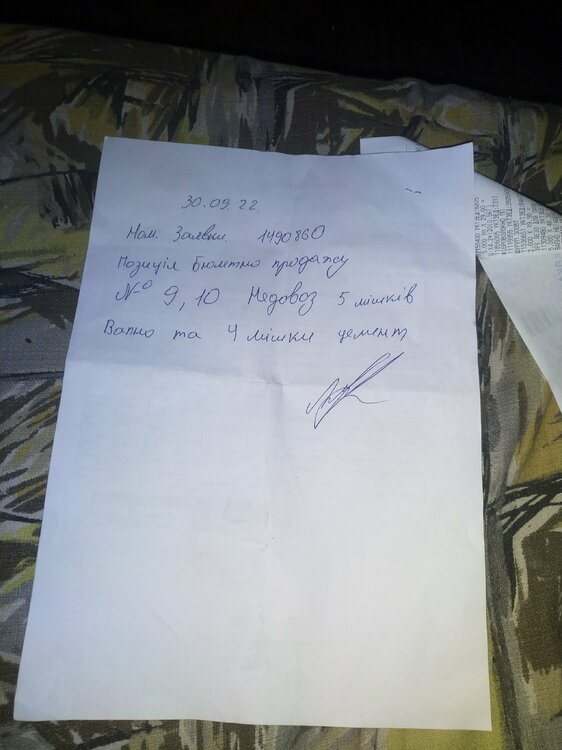 30.09.22.
Ном. Заявки. 1490860
Позиція Бюлетню продажу
№ 9,10 Недовоз 5 мішків
Вапно та 4 мішки цемент